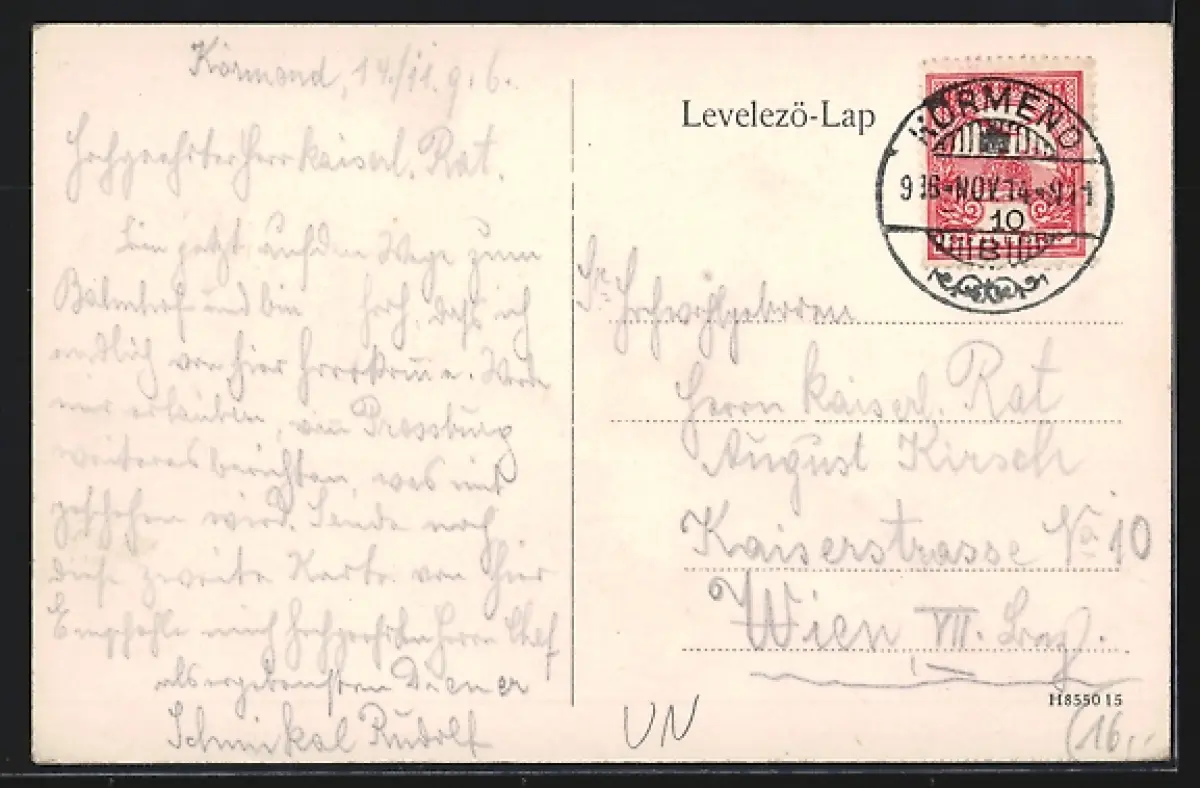 Körmend, 14./11. 9.6.
Hochgeehrter Herr kaiserl. Rat.
Bin jetzt auf dem Wege zum
Bahnhof und bin froh, daß ich
endlich von hier fortkomme. Werde
mir erlauben, von Pressburg
weiteres berichten, was mit
geschehen wird. Sende noch
diese zweite Karte von hier
Empfehle mich hochgeehrten Herrn Chef
als ergebensten Diener
Schmikal Rudolf
Levelező-Lap
KÖRMEND
NOV. 14
10
B
Sr. Hochwohlgeboren
Herrn kaiserl. Rat
August Kirsch
Kaiserstrasse No 10
Wien VII. Bez.
H8550 15
VN
(16,-